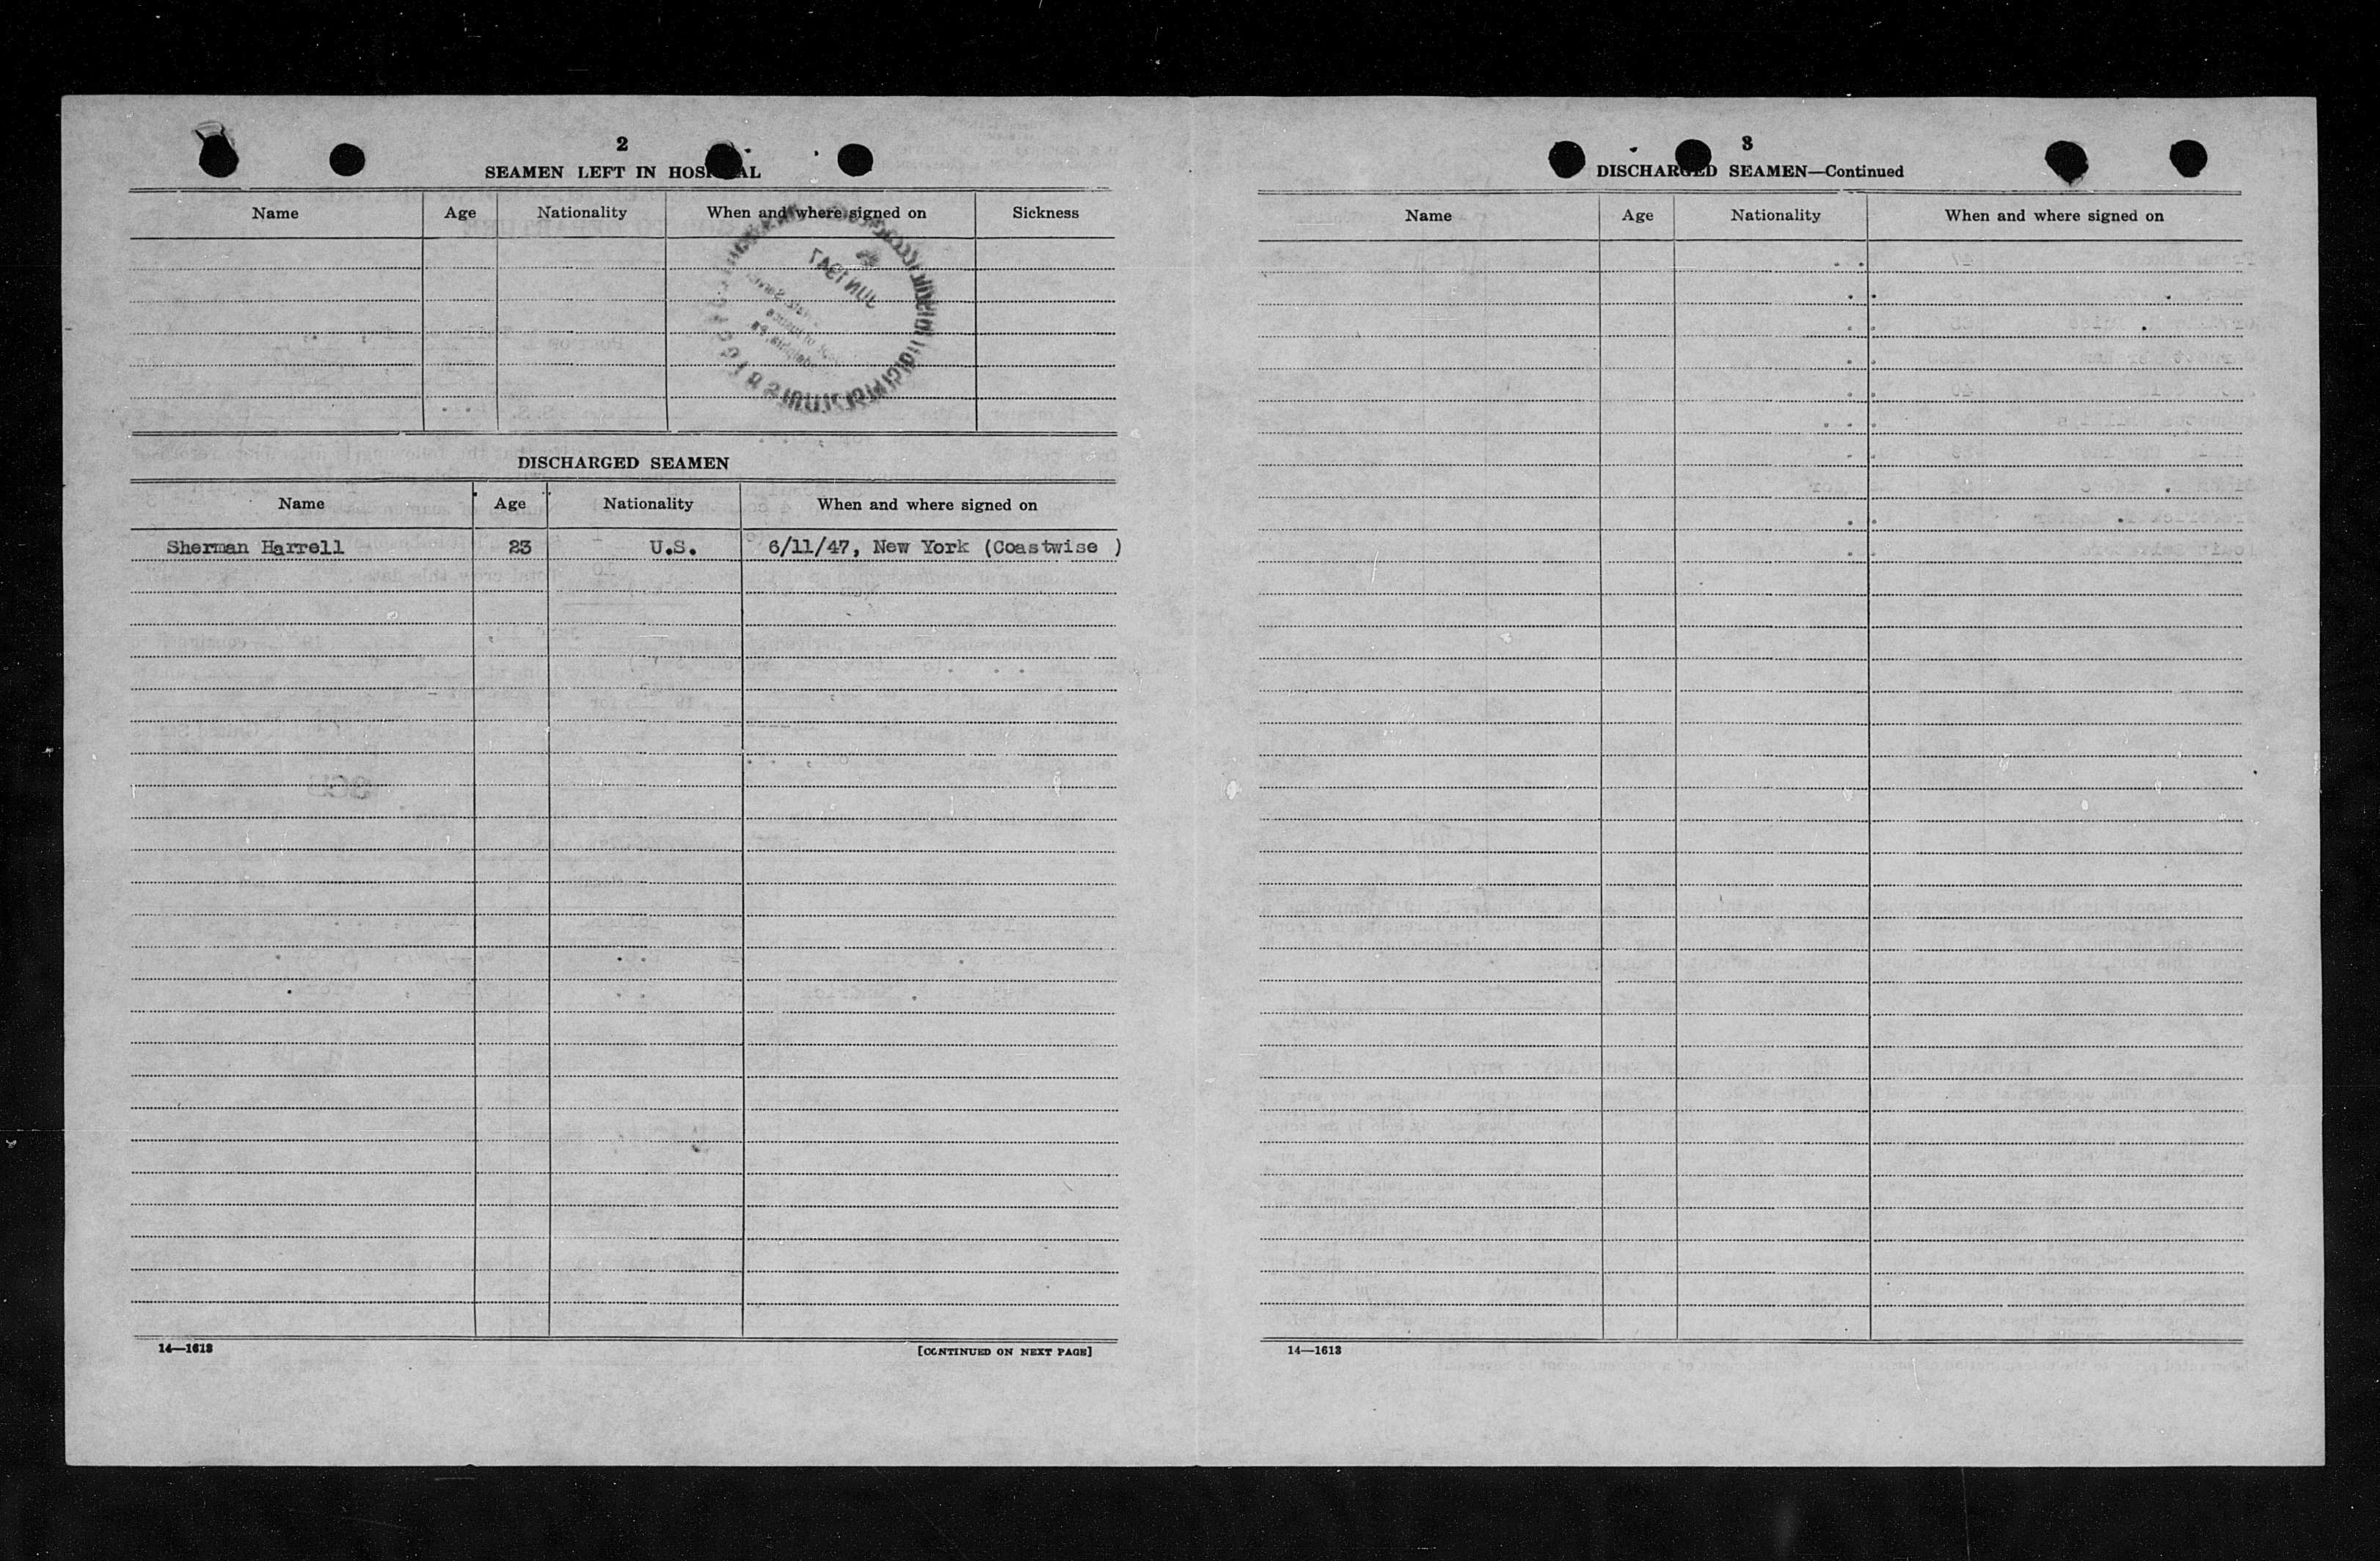 2
SEAMEN LEFT IN HOSPITAL
Name Age Nationality When and where signed on Sickness
JUN 1947
DISCHARGED SEAMEN
Name Age Nationality When and where signed on
Sherman Harrell 23 U.S. 6/11/47, New York (Coastwise )
14—1613 [CONTINUED ON NEXT PAGE]
3
DISCHARGED SEAMEN—Continued
Name Age Nationality When and where signed on
14—1613